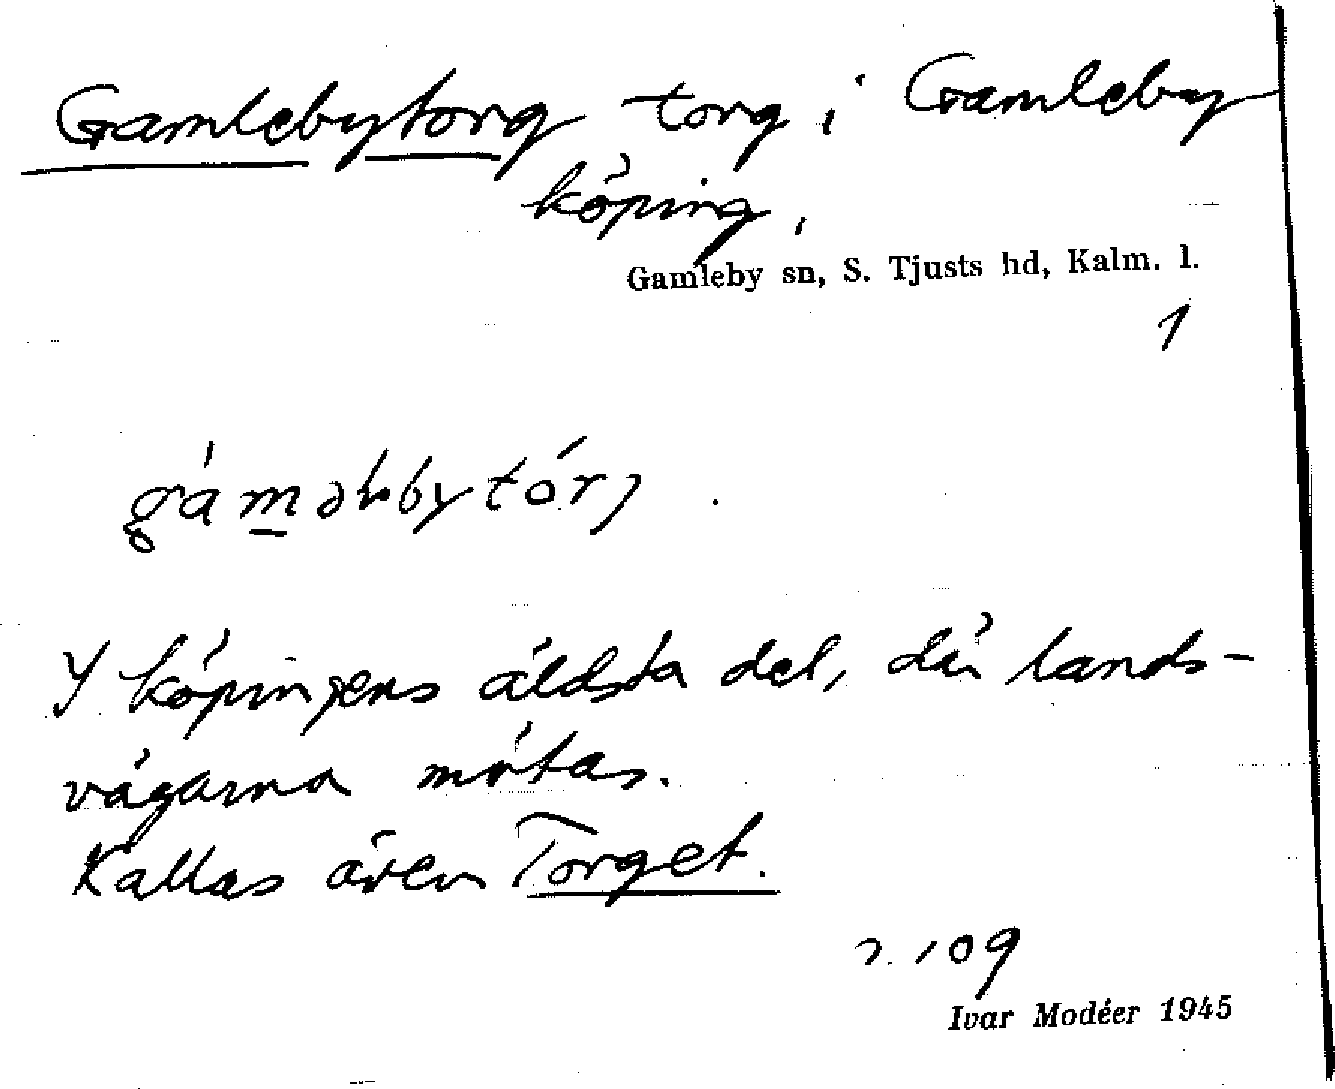 Gamlebytorg torg i Gamleby
köping,
Gamleby sn, S. Tjusts hd, Kalm. l.
1
I köpingens äldsta del, där lands-
vägarna mötas.
Kallas även Torget.
109
Ivar Modéer 1945